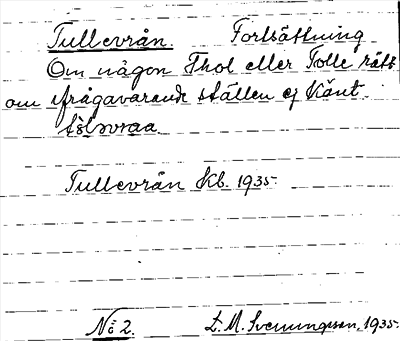 Tullevrån. Fortsättning
Om någon Thol eller Tolle rätt
om ifrågavarande ställen ej känt.
Tullevrån Kb. 1935.
No 2. L. M. Svenungsson, 1935.